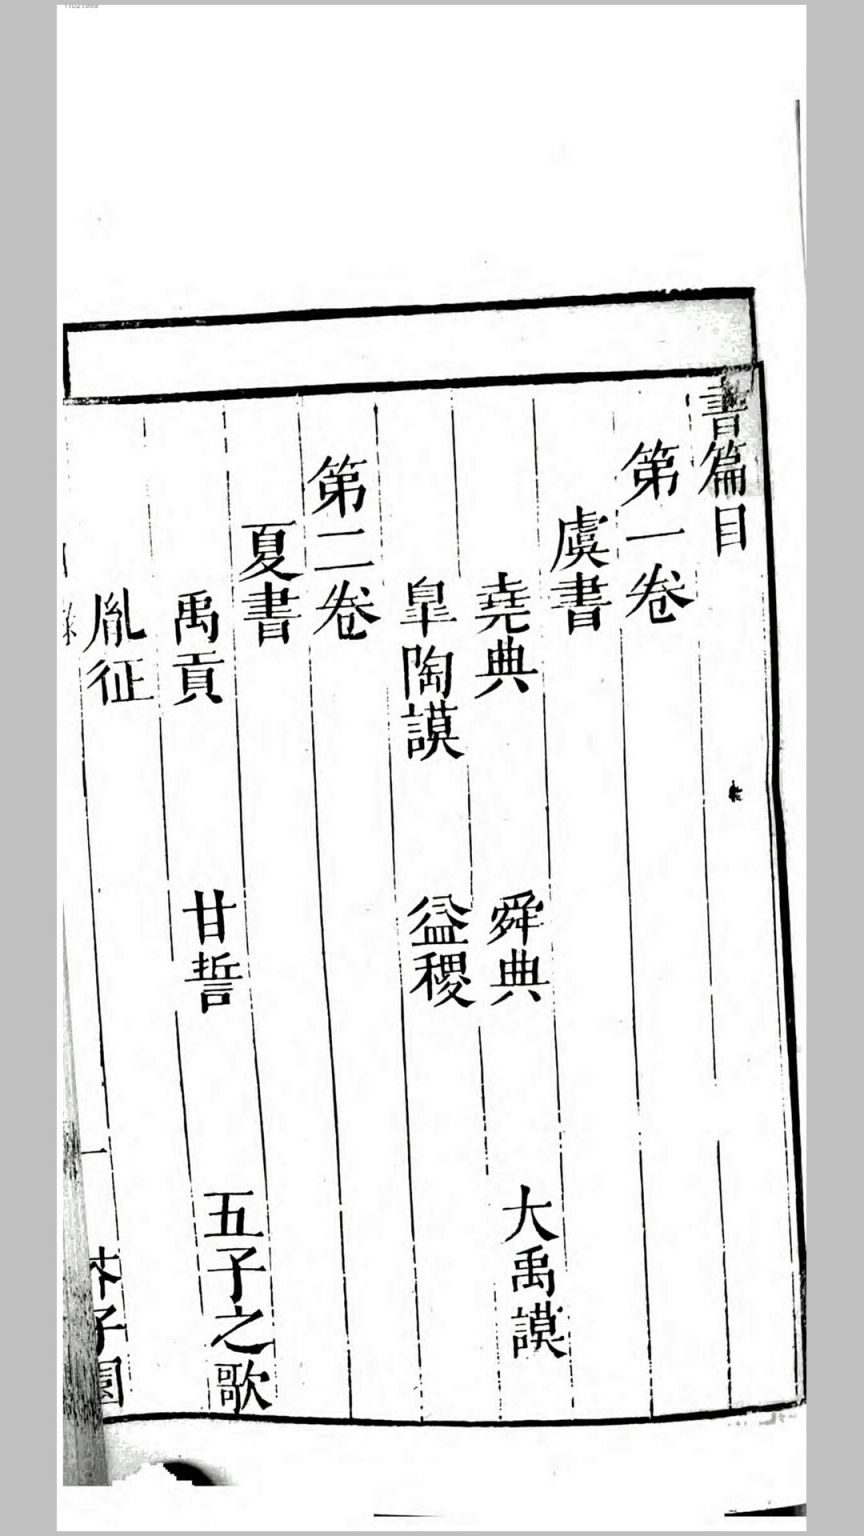 書篇目
第一卷
虞書
堯典 舜典 大禹謨
皐陶謨 益稷
第二卷
夏書
禹貢 甘誓 五子之歌
胤征
一 芥子園